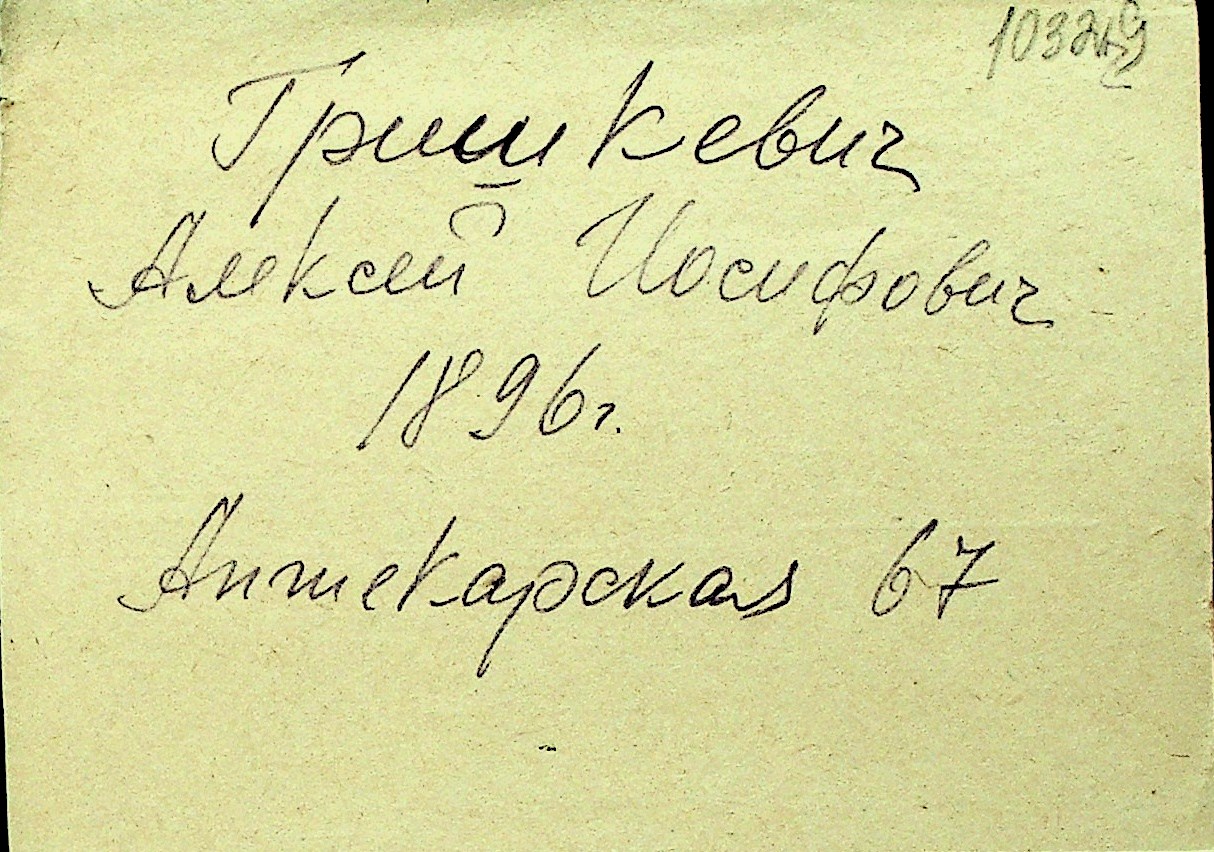 Гришкевич
Алексей Иосифович
1896г.
Аптекарская 67